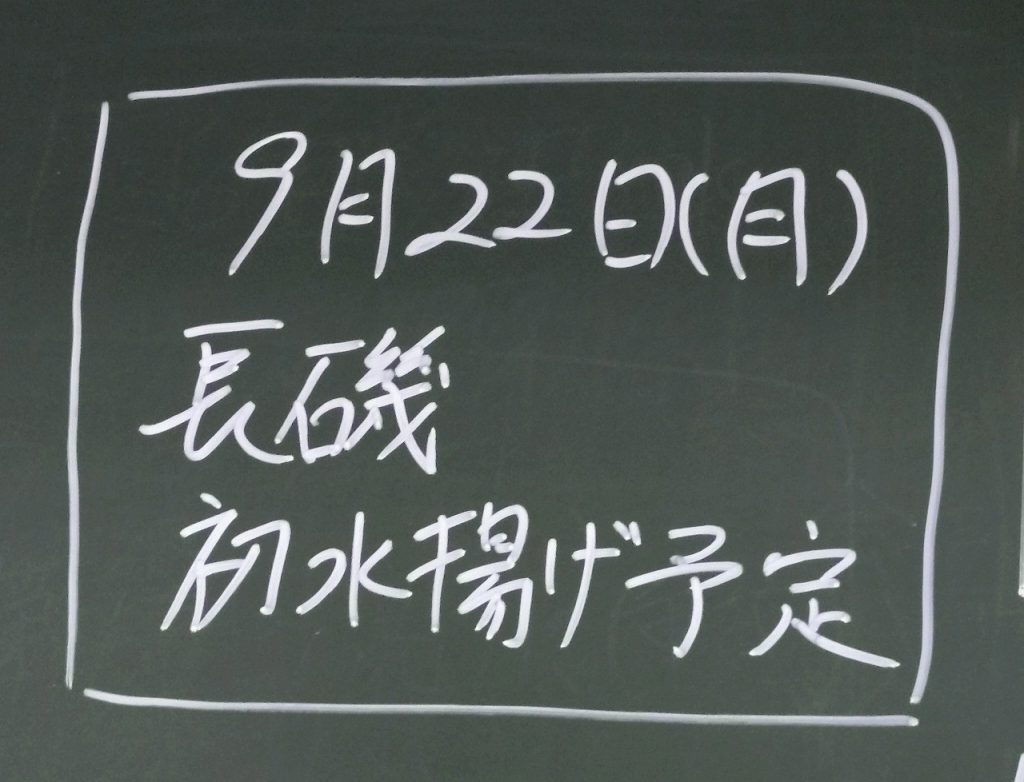 9月22日(月)
長磯
初水揚げ予定